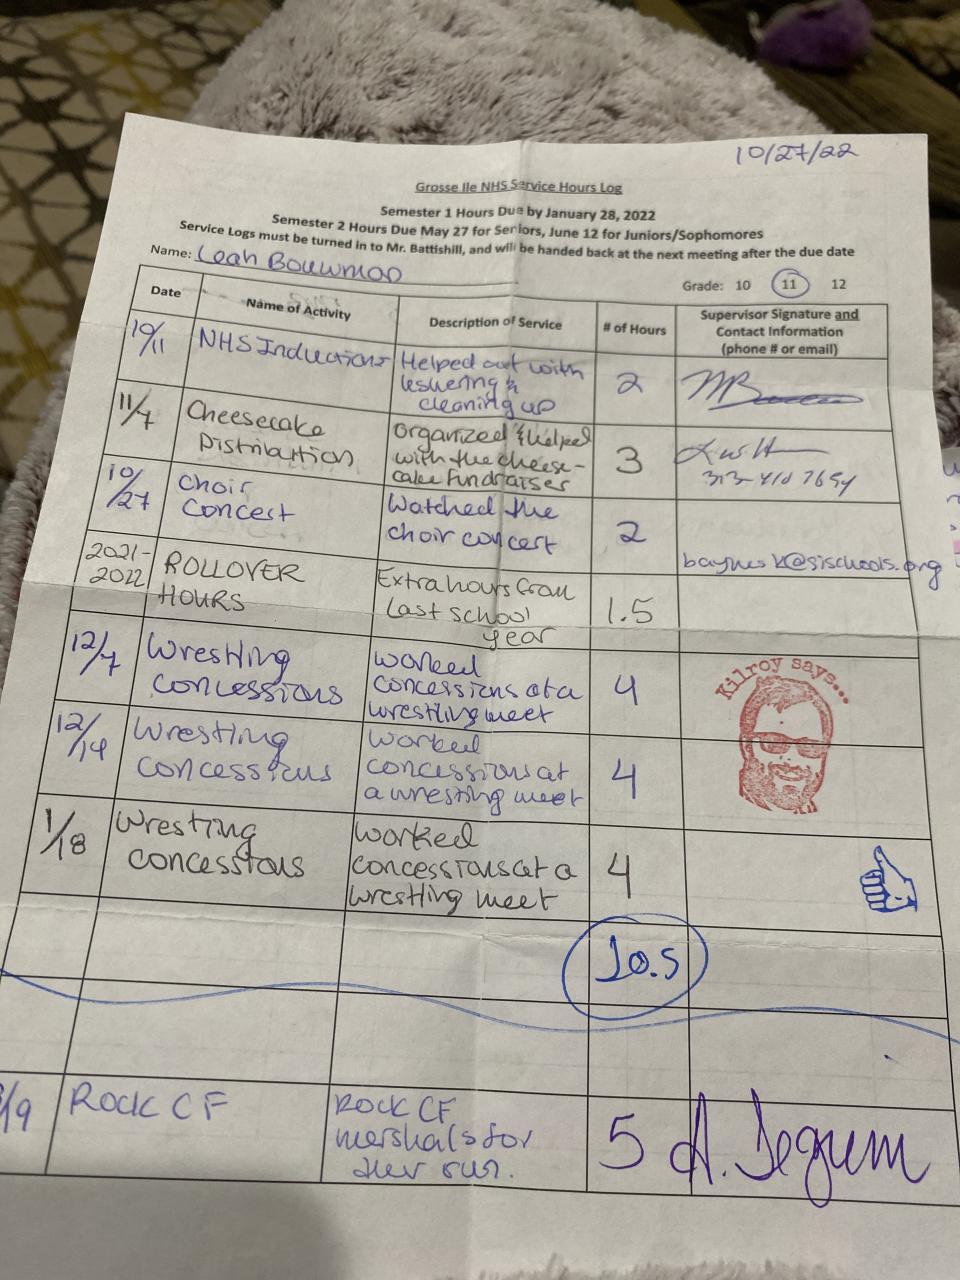 10/27/22
Grosse Ile NHS Service Hours Log
Semester 1 Hours Due by January 28, 2022
Semester 2 Hours Due May 27 for Seniors, June 12 for Juniors/Sophomores
Service Logs must be turned in to Mr. Battishill, and will be handed back at the next meeting after the due date
Name: Leah Bouwman
Grade: 10 11 12
Date Name of Activity Description of Service # of Hours Supervisor Signature and
Contact Information
(phone # or email)
10/11 NHS Inductions Helped out with
ushering &
cleaning up 2
11/7 Cheesecake
Distribution Organized & helped
with the cheese-
cake fundraiser 3
313-410 7654
10/27 Choir
Concert Watched the
choir concert 2
@gischools.org
2021-
2022 ROLLOVER
HOURS Extra hours from
last school
year 1.5
12/7 Wrestling
concessions worked
concessions at a
wrestling meet 4
Kilroy says...
12/14 Wrestling
concessions Worked
concessions at
a wrestling meet 4
1/18 Wrestling
concessions Worked
concessions at a
wrestling meet 4
20.5
/19 ROCK CF ROCK CF
marshals for
their run. 5 A. Jegum